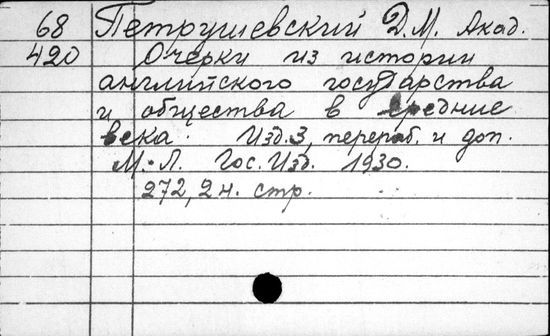 68 Петрушевский Д.М. Акад.
420 Очерки из истории
английского государства
и общества в средние
века. Изд.3, перераб. и доп.
М.-Л. Гос. Изд. 1930.
272, 2 н. стр.